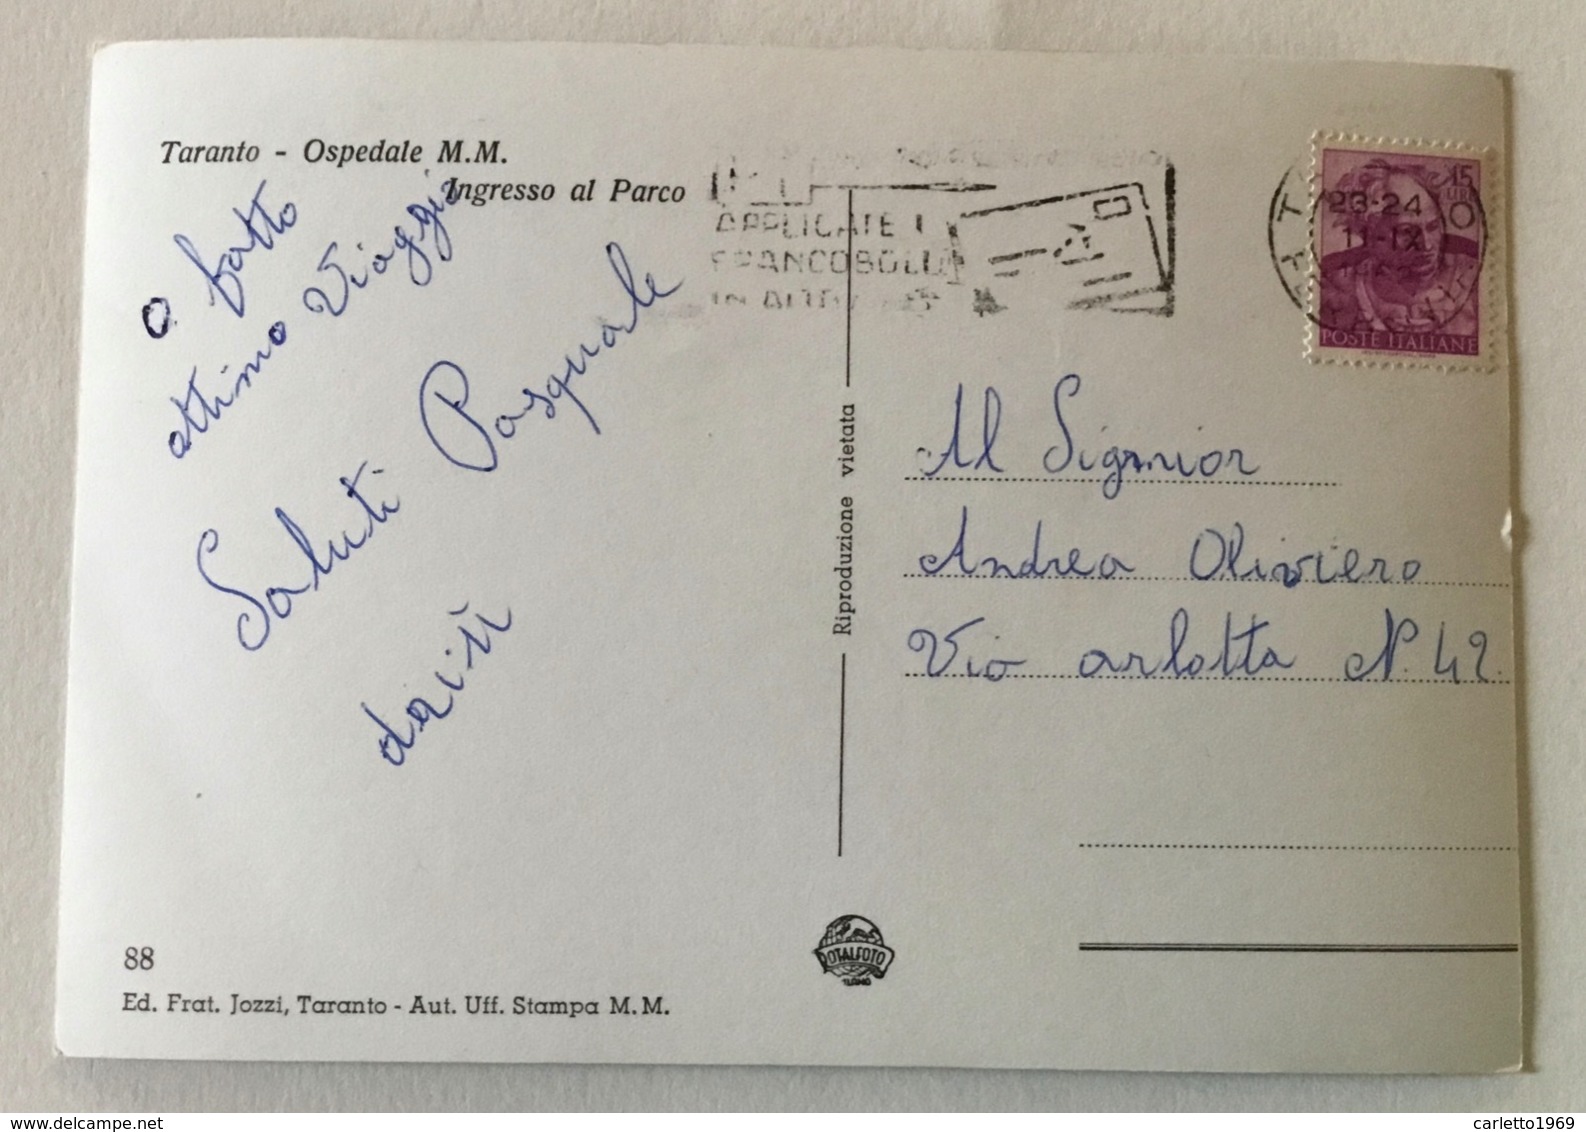 Taranto - Ospedale M.M.
Ingresso al Parco
o fatto
ottimo Viaggio
Saluti Pasquale
APPLICATE I
FRANCOBOLLI
IN ALTO
15
LIRE
23-24
11-IX
POSTE ITALIANE
Riproduzione vietata
Al Sigmior
Andrea Oliviero
Via arlotta N. 42
ROTALFOTO
88
Ed. Frat. Jozzi, Taranto - Aut. Uff. Stampa M.M.
www.delcampe.net
carletto1969